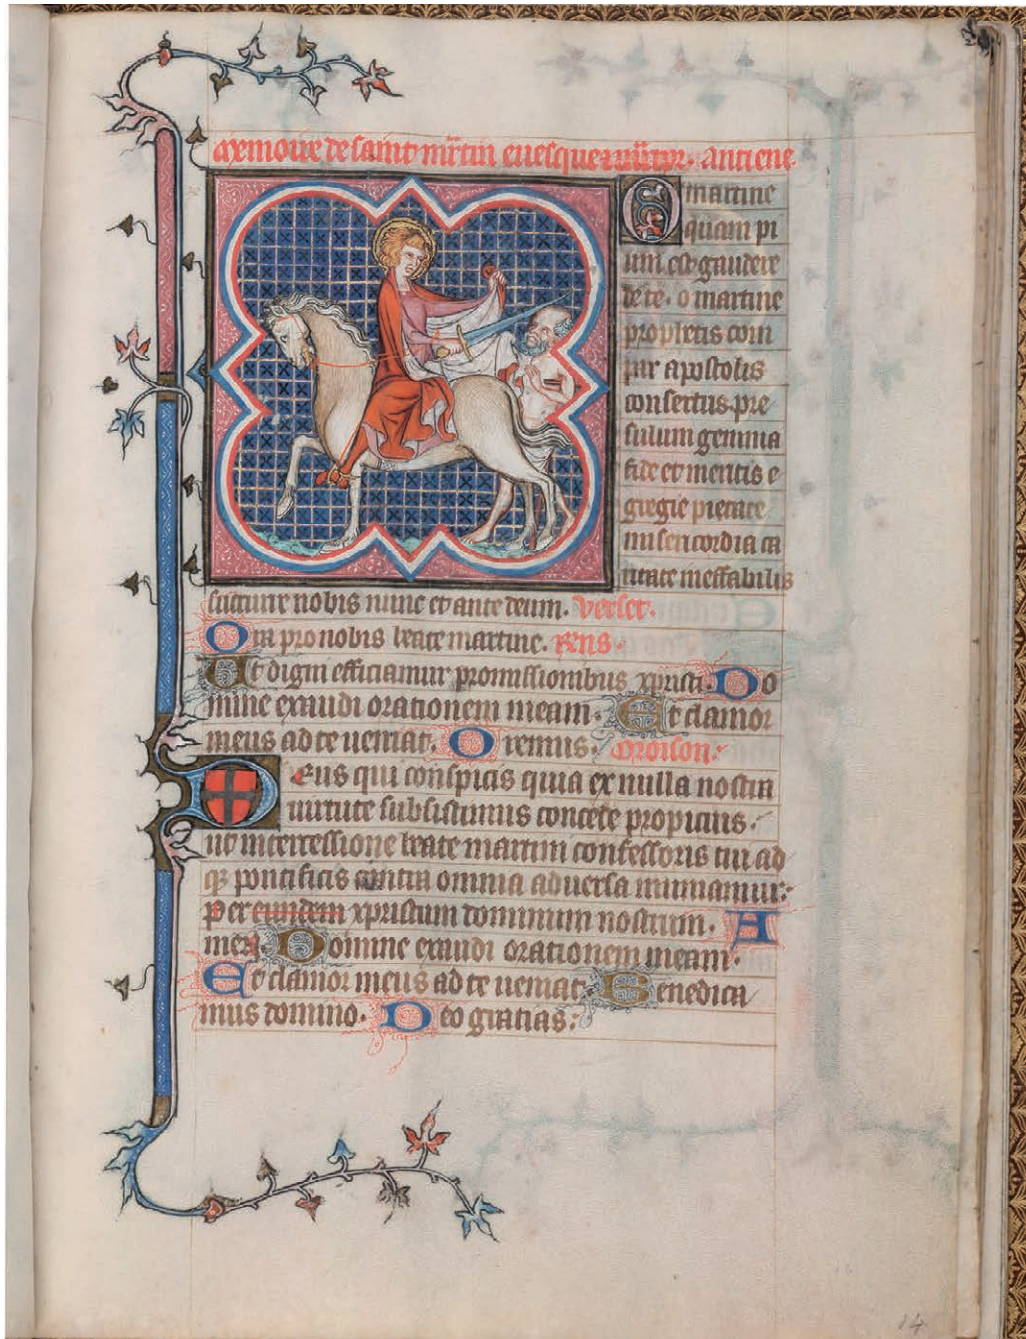 a memoire de saint mr̄tin euesque . antiene
O martine
quam pi
um est gaudere
de te. o martine
prophetis com
par apostolis
consertus. pre
sulum gemma
fide et meritis e
gregie pietate
misericordia ca
ritate ineffabilis
succurre nobis nunc et ante deum. verset.
Ora pro nobis beate martine. Rens.
Ut digni efficiamur promissionibus xpristi. Do
mine exaudi orationem meam. Et clamor
meus ad te ueniat. Oremus. Oroison.
Deus qui conspicis quia ex nulla nostra
uirtute subsistimus concede propicius.
ut intercessione beate martini confessoris tui ad
q3 pontificis contra omnia aduersa muniamur:
Per eundem xpristum dominum nostrum. A
men. Domine exaudi orationem meam.
Et clamor meus ad te ueniat. Benedica
mus domino. Deo gratias:
14